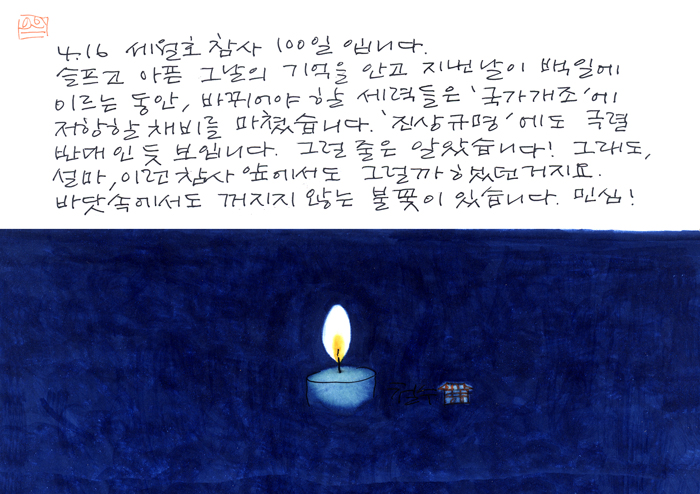 4.16 세월호 참사 100일 입니다.
슬프고 아픈 그날의 기억을 안고 지번날이 백일에
이르는 동안, 바뀌어야 할 세력들은 '국가개조'에
저항할 채비를 마쳤습니다. '진상규명'에도 극렬
반대인 듯 보입니다. 그럴 줄은 알았습니다! 그래도,
설마, 이런 참사 앞에서도 그럴까 하였던거지요.
바닷속에서도 꺼지지 않는 불꽃이 있습니다. 민심!